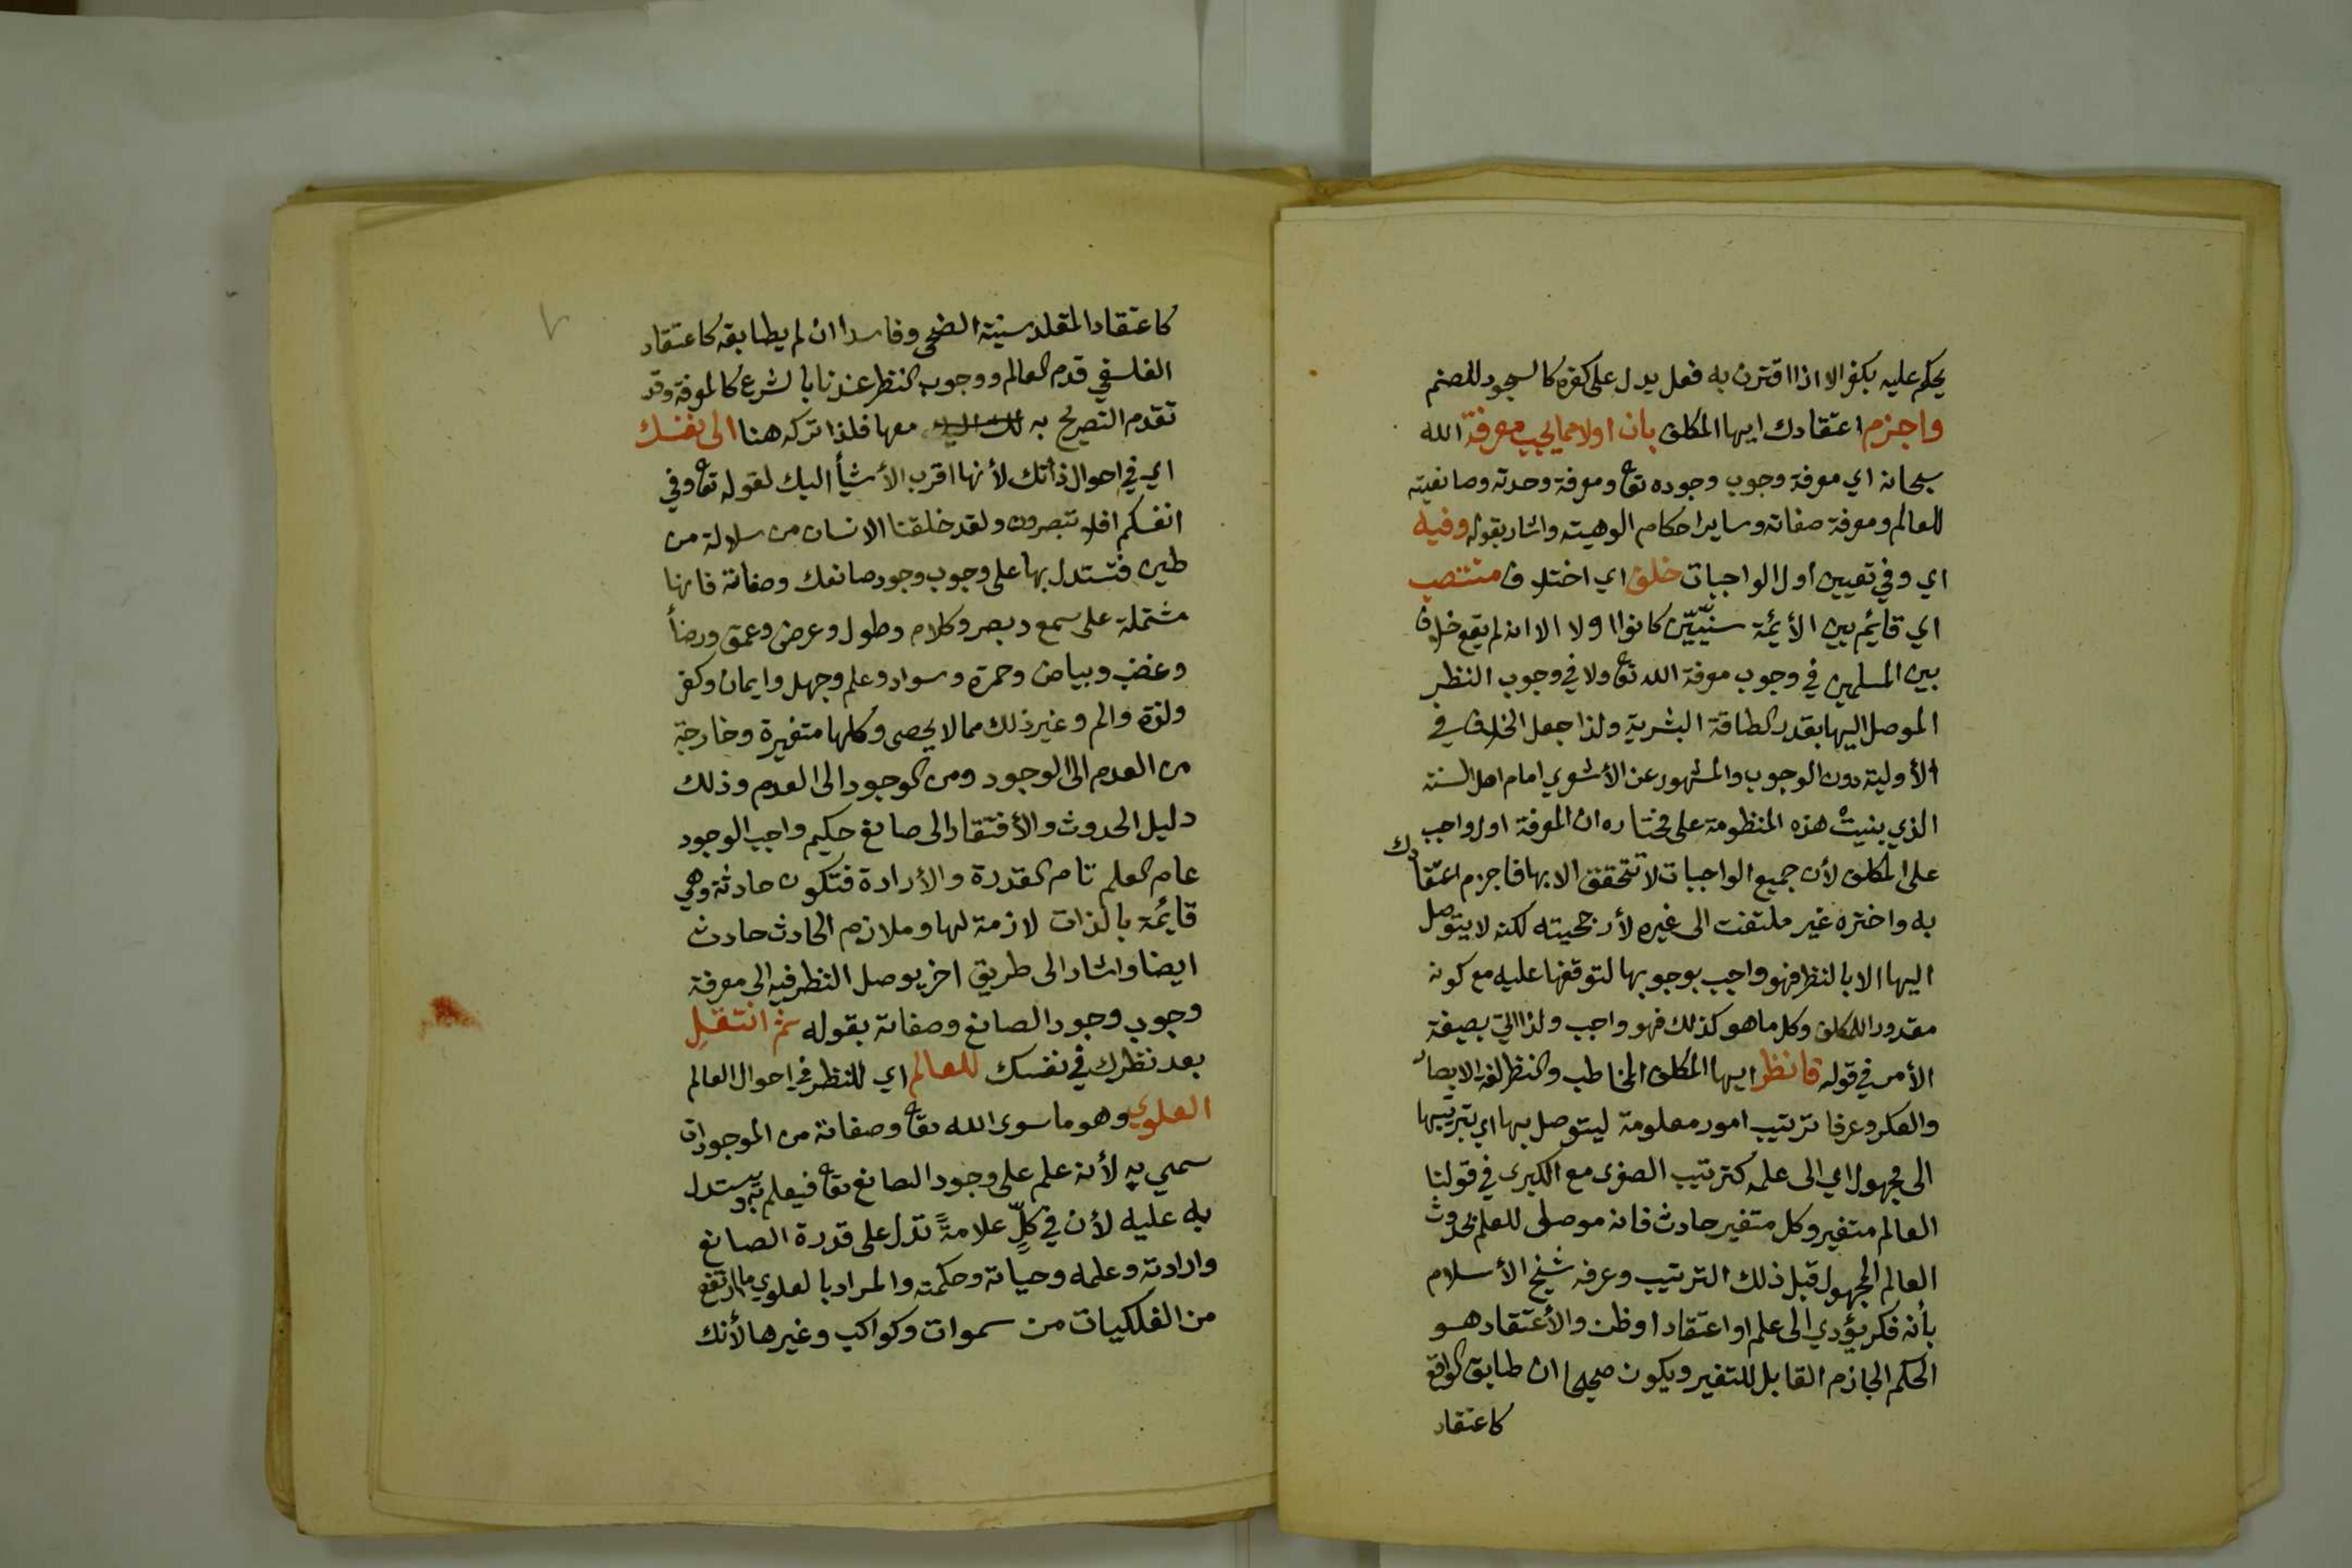 يحكم عليه بكفر الا اذا اقترن به فعل يدل على كفره كالسجود للصنم
واجزم اعتقادك ايها المكلف بان اولا مما يجب معرفة الله
سبحانه اي معرفة وجوب وجوده تعا ومعرفة وحدته وصانعيته
للعالم ومعرفة صفاته وساير احكام الوهيته واشار بقوله وفيه
اي وفي تعيين اول الواجبات خلف اي اختلاف منتصب
اي قايم بين الأيمة سنيّين كانوا اولا الا انه لم يقع خلاف
بين المسلمين في وجوب معرفة الله تعا ولا في وجوب النظر
الموصل اليها بقدر الطاقة البشرية ولذا جعل الخلاف في
الأولية دون الوجوب والمشهور عن الأشعري امام اهل السنة
الذي بنيت هذه المنظومة على مختاره ان المعرفة اول واجب
على المكلف لأن جميع الواجبات لا تتحقق الا بها فاجزم اعتقادك
به واختره غير ملتفت الى غيره لأرجحيته لكنه لا يتوصل
اليها الا بالنظر فهو واجب بوجوبها لتوقفها عليه مع كونه
مقدورا للمكلف وكل ما هو كذلك فهو واجب ولذا اتي بصيغة
الأمر في قوله فانظر ايها المكلف المخاطب والنظر لغة الابصار
والفكر وعرفا ترتيب امور معلومة ليتوصل بها اي بترتيبها
الى مجهول اي الى علمه كترتيب الصغرى مع الكبرى في قولنا
العالم متغير وكل متغير حادث فانه موصل للعلم بحدوث
العالم المجهول قبل ذلك الترتيب وعرفه شيخ الأسلام
بأنه فكر يؤدي الى علم او اعتقاد او ظن والأعتقاد هو
الحكم الجازم القابل للتغير ويكون صحيحا ان طابق الواقع
كاعتقاد
كاعتقاد المقلد سنية الضحى وفاسدا ان لم يطابقه كاعتقاد
الفلسفي قدم العالم ووجوب النظر عندنا بالشرع كالمعرفة وقد
تقدم التصريح به معها فلذا تركه هنا الى نفسك
اي في احوال ذاتك لأنها اقرب الأشيأ اليك لقوله تعا وفي
انفسكم افلا تبصرون ولقد خلقنا الانسان من سلالة من
طين فتستدل بها على وجوب وجود صانعك وصفاته فانها
مشتملة على سمع وبصر وكلام وطول وعرض وعمق ورضأ
وغضب وبياض وحمرة وسواد وعلم وجهل وايمان وكفر
ولذة والم وغير ذلك مما لا يحصى وكلها متغيرة وخارجة
من العدم الى الوجود ومن الوجود الى العدم وذلك
دليل الحدوث والأفتقار الى صانع حكيم واجب الوجود
عام العلم تام القدرة والأرادة فتكون حادثة وهي
قايمة بالذات لازمة لها وملازم الحادث حادث
ايضا واشار الى طريق اخر يوصل النظر فيه الى معرفة
وجوب وجود الصانع وصفاته بقوله ثم انتقل
بعد نظرك في نفسك للعالم اي للنظر في احوال العالم
العلوي وهو ما سوى الله تعا وصفاته من الموجودات
سمي به لأنه علم على وجود الصانع تعا فيعلم به ويستدل
به عليه لأن في كلٍّ علامةً تدل على قدرة الصانع
وارادته وعلمه وحياته وحكمته والمراد بالعلوي ما ارتفع
من الفلكيات من سموات وكواكب وغيرها لأنك